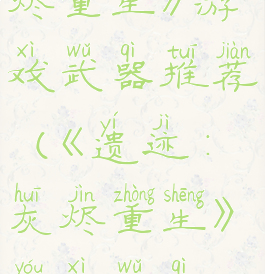 烬重生》游
xì wǔ qì tuī jiàn
戏武器推荐
yí jì
(《遗迹:
huī jìn zhòng shēng
灰烬重生》
yóu xì wǔ qì